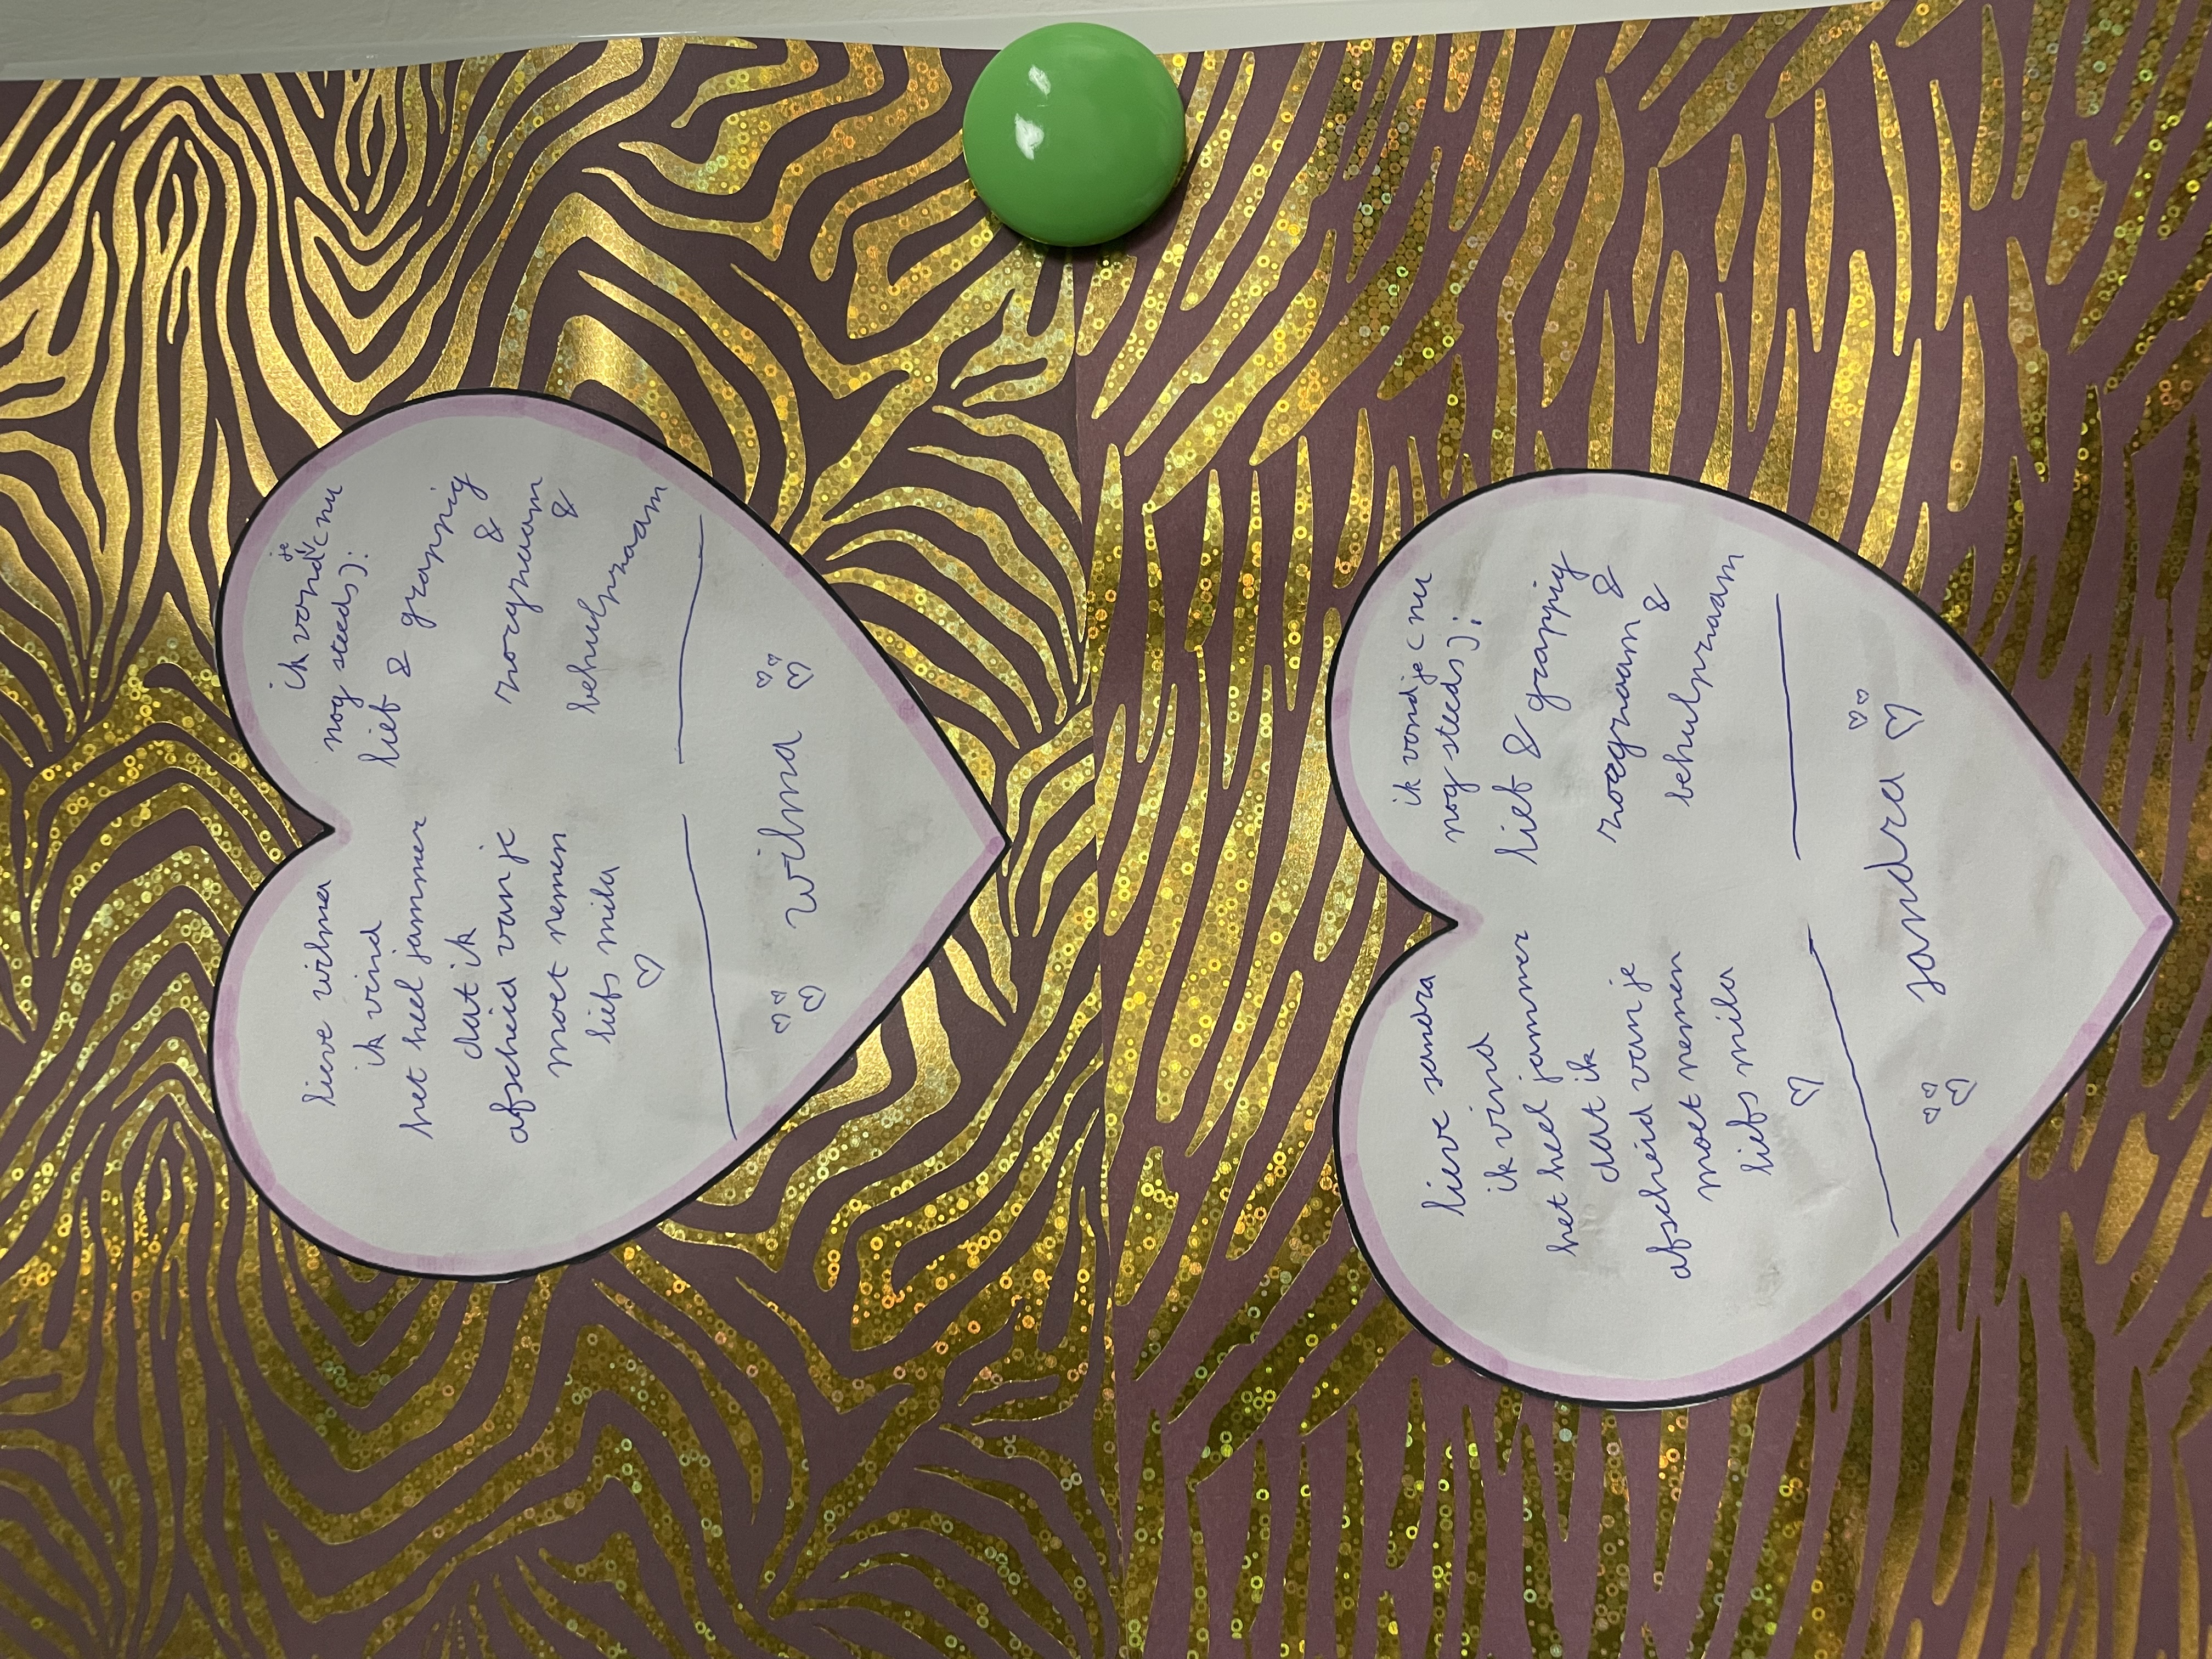 lieve wilma
ik vind
het heel jammer
dat ik
afscheid van je
moet nemen
liefs mila
♡
ik vond je (nu
nog steeds):
lief & grappig
&
zorgzaam
&
behulpzaam
wilma
lieve sandra
ik vind
het heel jammer
dat ik
afscheid van je
moet nemen
liefs mila
♡
ik vond je (nu
nog steeds):
lief & grappig
&
zorgzaam
&
behulpzaam
sandra